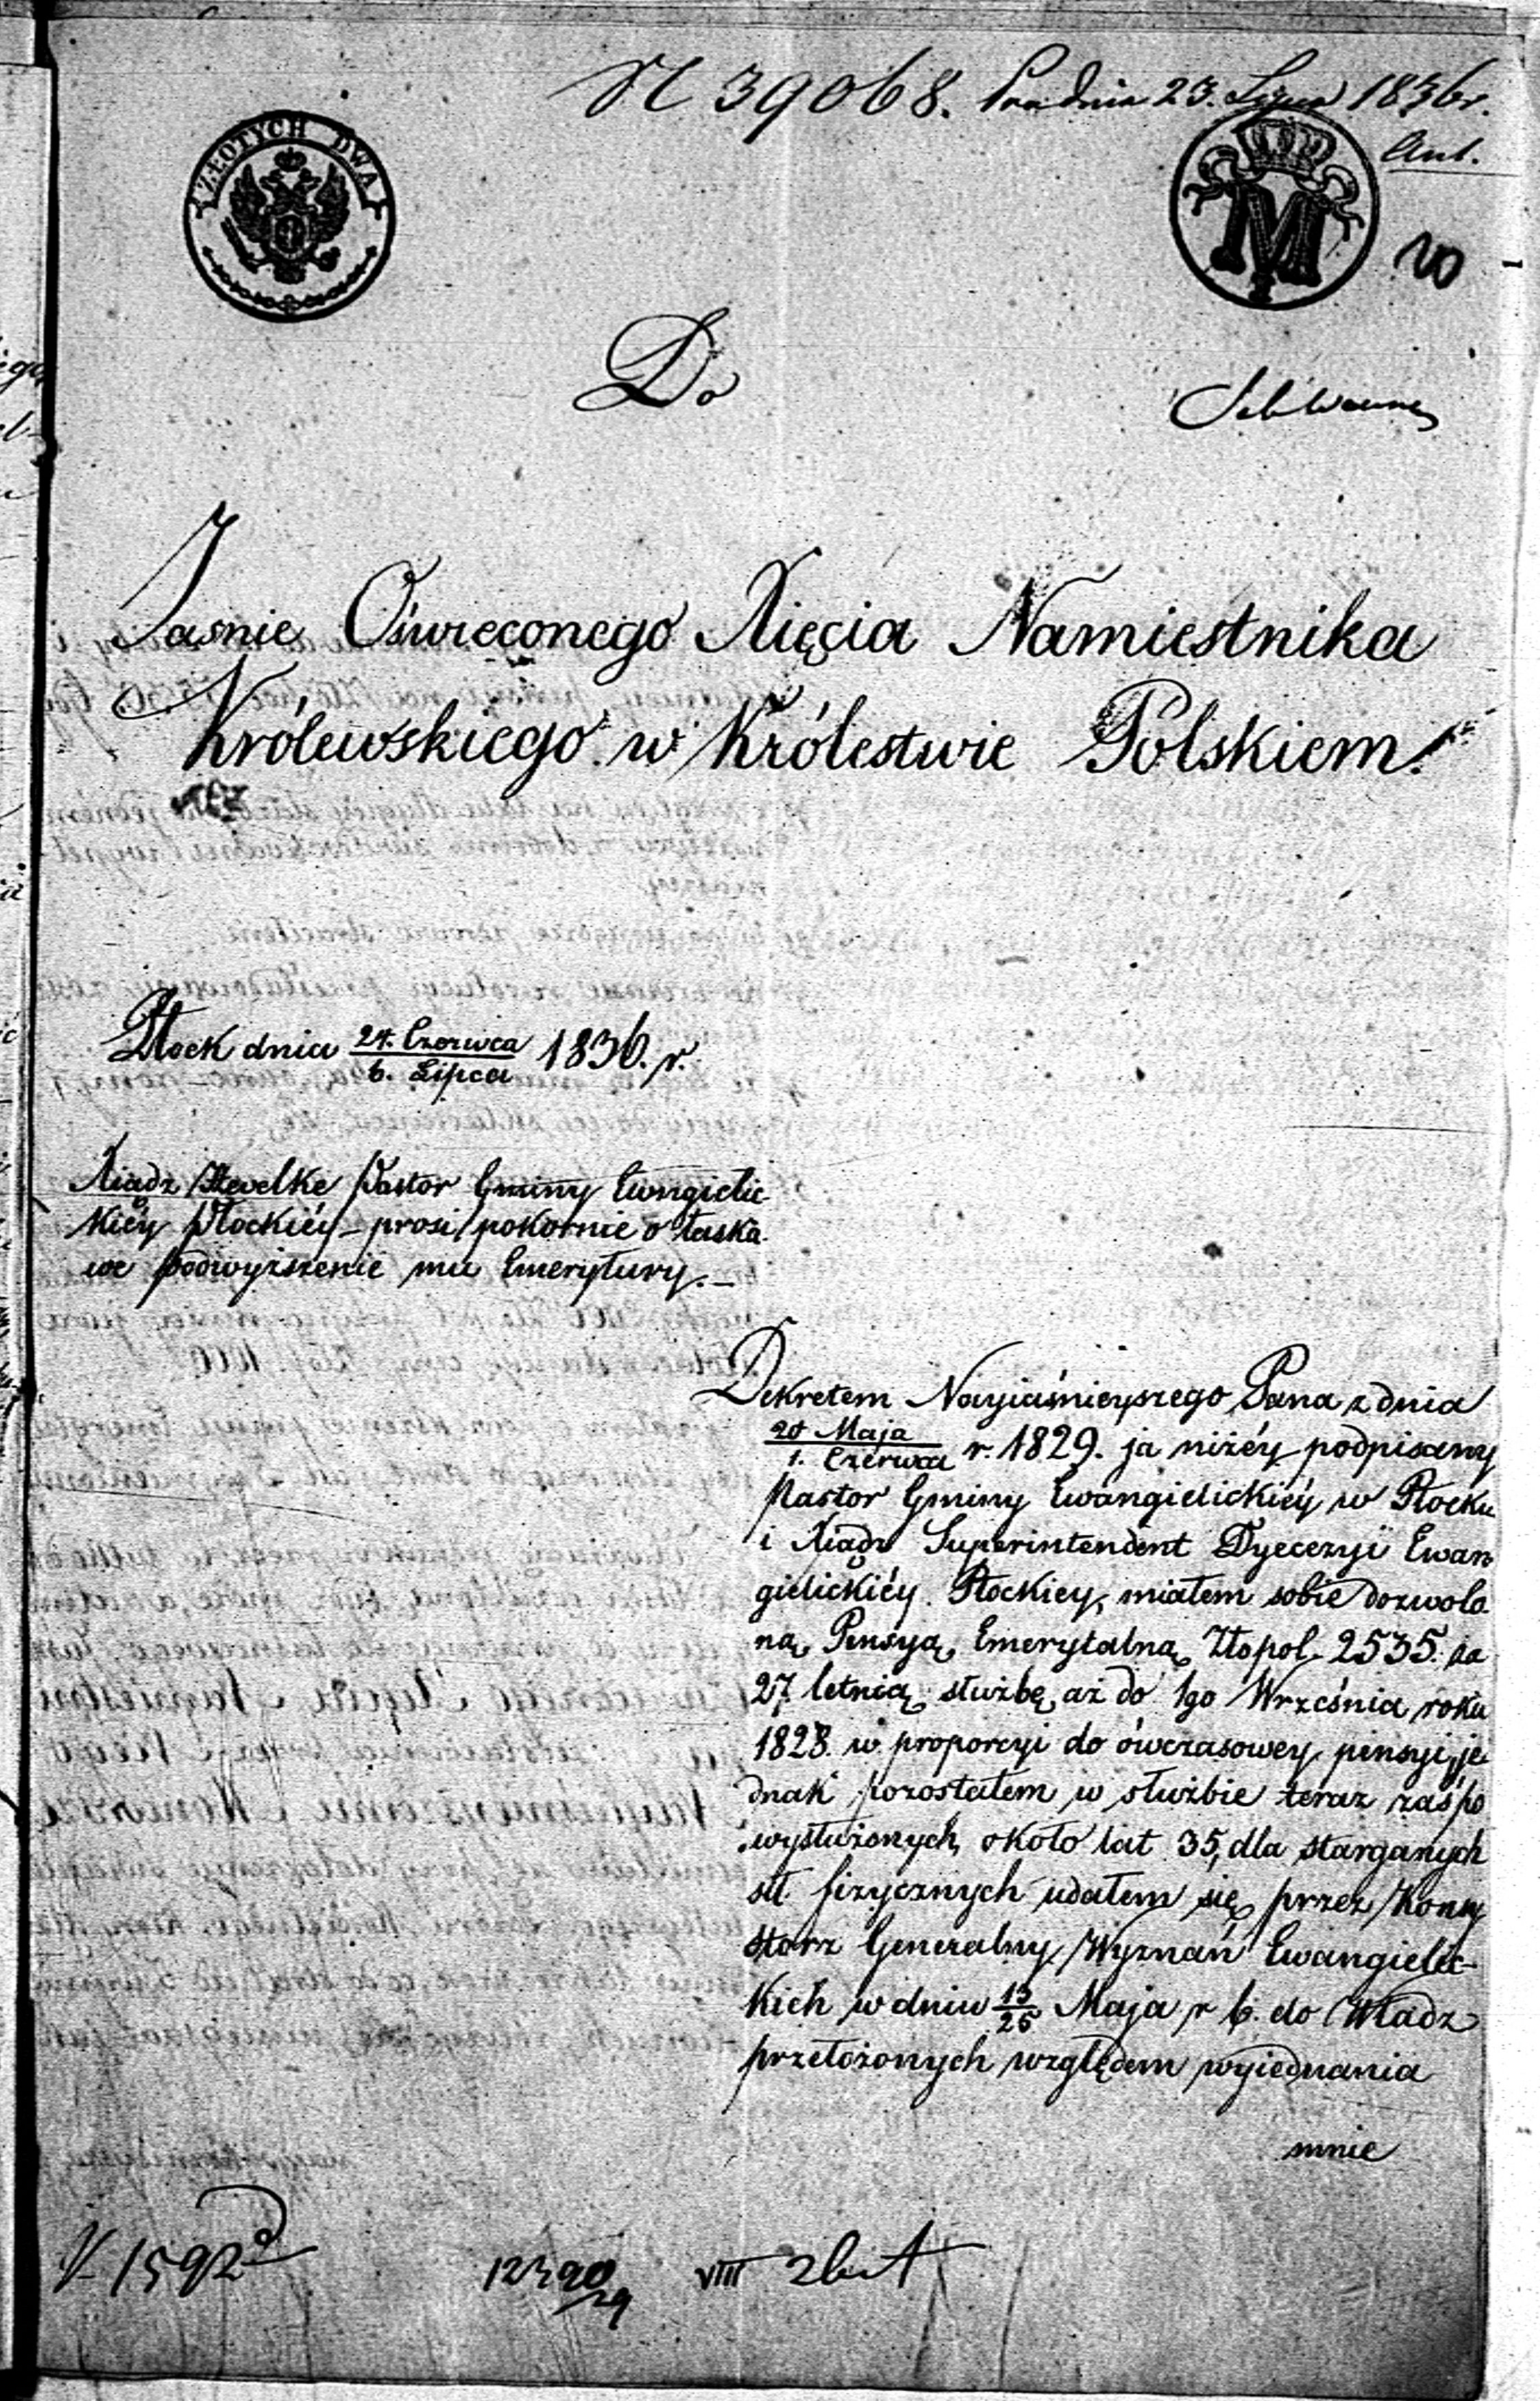 N 39068. Prd dnia 23. Lipca 1836 r.
ZŁOTYCH DWA
M
20
Do
Jasnie Oświeconego Xięcia Namiestnika
Królewskiego w Królestwie Polskiem.
Płock dnia 24. Czerwca / 6. Lipca 1836. r.
Xiądz Hevelke Pastor Gminy Ewngielic
kiéy Płockiéy – prosi pokornie o łaska
we podwyższenie mu Emerytury. –
Dekretem Nayiaśnieyszego Pana z dnia
20 Maja / 1. Czerwca r. 1829. ja niżéy podpisany
Pastor Gminy Ewangielickiéy w Płocku
i Xiądz Superintendent Dyecezyi Ewan
gielickiéy Płockiey, miałem sobie dozwolo
ną Pensyą Emerytalną Złopol. 2535. za
27 letnią służbę aż do 1go Września roku
1828. w proporcyi do ówczasowey pensyi, je
dnak pozostałem w służbie teraz zaś po
wysłużonych około lat 35, dla starganych
sił fizycznych udałem się przez Konsy
storz Generalny Wyznań Ewangielic-
kich w dniu 13/25 Maja r b. do Władz
przełożonych względem wyiednania
mnie
VIII